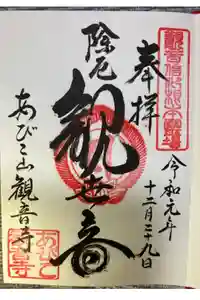 奉拝
令和元年
十二月二十九日
除厄
観世音
あびこ山観音寺